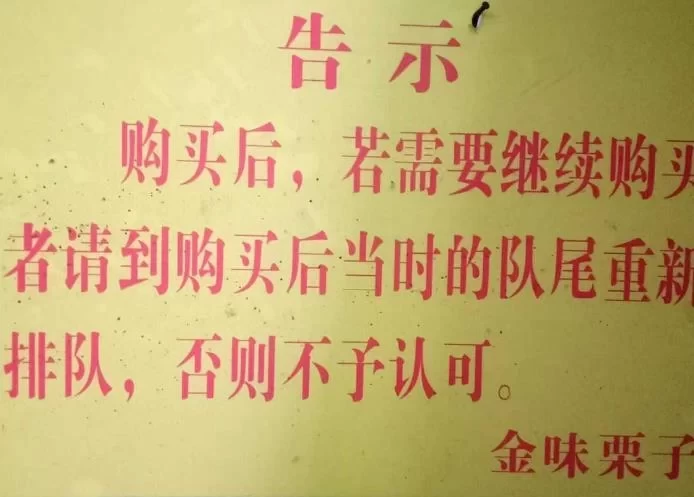 告示
购买后，若需要继续购买
者请到购买后当时的队尾重新
排队，否则不予认可。
金味栗子